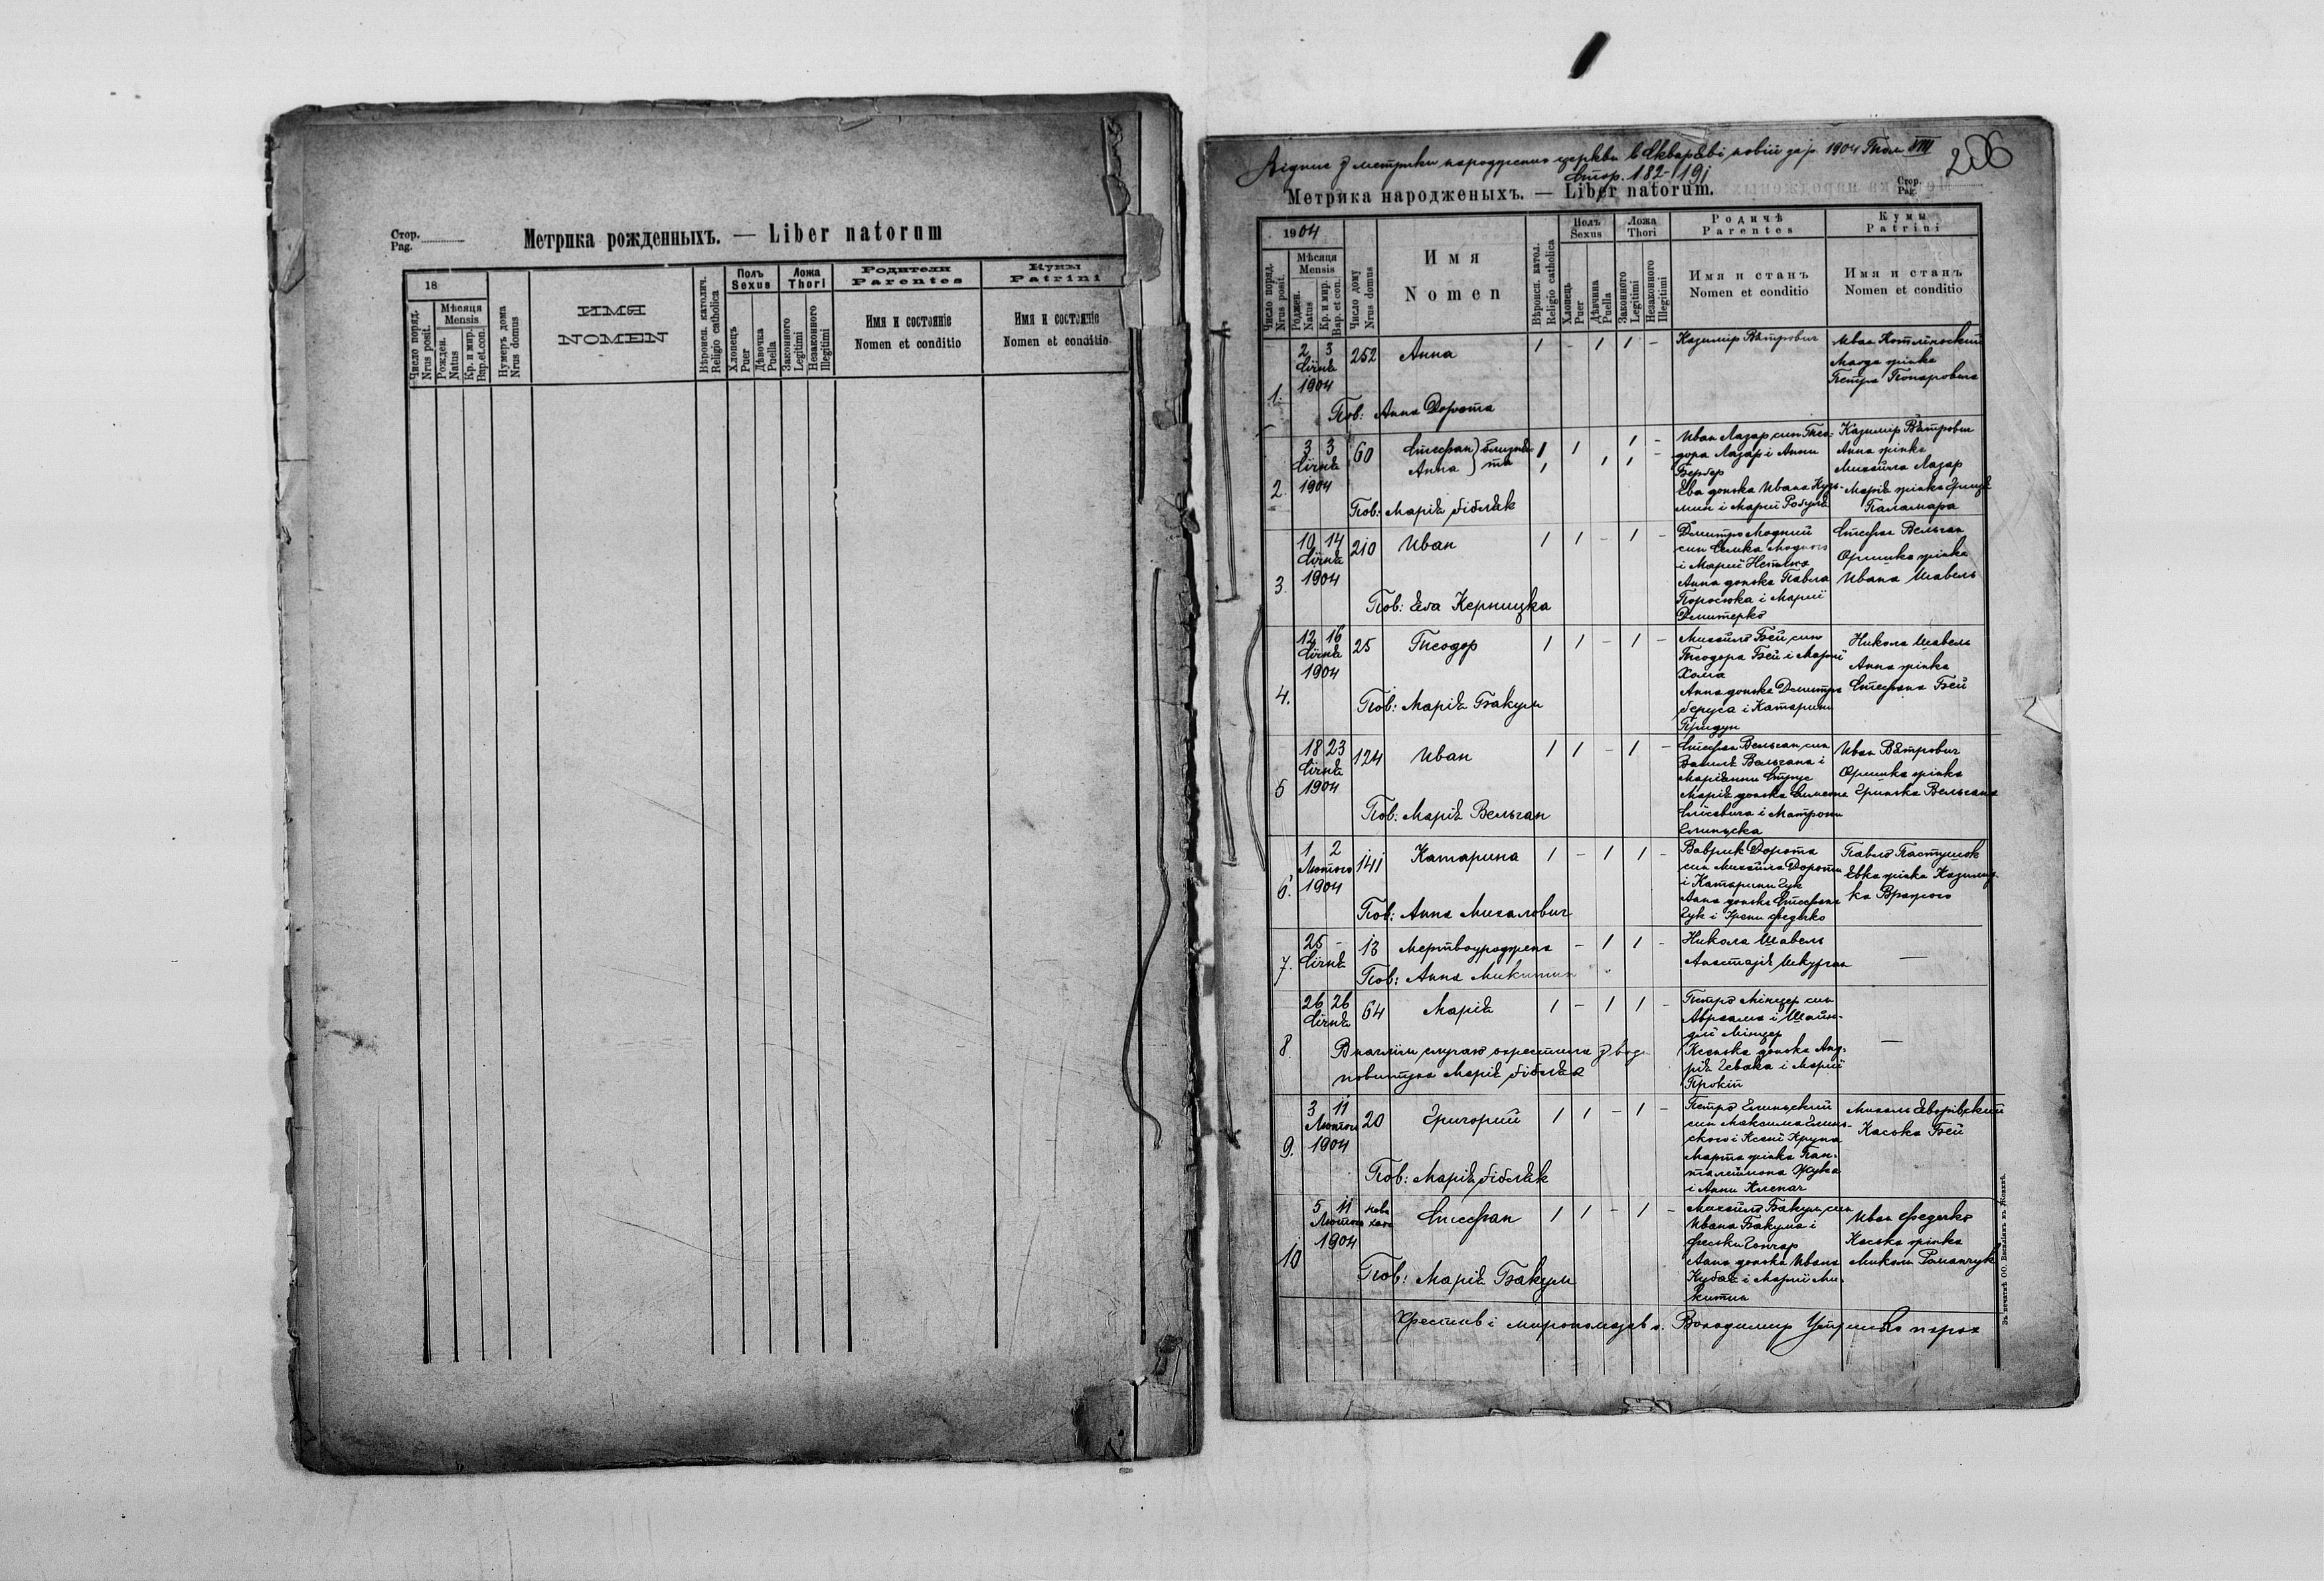 Стор.
Pag.
Метрика рожденныхъ. — Liber natorum
18
Мѣсяця
Mensis
Число поряд.
Nrus posit.
Рожден.
Natus
Кр. и мир.
Bap. et con.
Нумеръ дома
Nrus domus
ИМЯ
NOMEN
Вѣроисп. католич.
Religio catholica
Полъ
Sexus
Хлопецъ
Puer
Дѣвочка
Puella
Ложа
Thori
Законного
Legitimi
Незаконного
Illegitimi
Родители
Parentes
Имя и состояніе
Nomen et conditio
Кумы
Patrini
Имя и состояніе
Nomen et conditio
Відпис з метрики народжених церкви в Скваряві новій за р. 1904 Том VIII
Стор. 182-191
206
Метрика народженыхъ. — Liber natorum.
Стор.
Pag.
1904
Мѣсяця
Mensis
Число поряд.
Nrus posit.
Рожден.
Natus
Кр. и мир.
Bap. et con.
Число дому
Nrus domus
Имя
Nomen
Вѣроисп. катол.
Religio catholica
Полъ
Sexus
Хлопець
Puer
Дѣвчина
Puella
Ложа
Thori
Законного
Legitimi
Незаконного
Illegitimi
Родичѣ
Parentes
Имя и станъ
Nomen et conditio
Кумы
Patrini
Имя и станъ
Nomen et conditio
1. 2 3 Січня 1904 252 Анна 1 - 1 1 -
Казимір Вѣтрович
Иван
Магда жінка
Петра
Пов: Анна Дорота
2. 3 3 Січня 1904 60 Стефан
Анна } близнята
Иван Лазар син Тео-
дора Лазар і Анни
Бербер
Ева донька Ивана Кузь-
мин і Марії
Казимір Вѣтрович
Анна жінка
Михайла Лазар
Марія жінка
Паламара
Пов: Марія Бібляк
3. 10 14 Січня 1904 210 Иван 1 1 - 1 -
Дмитро Модний
син Сенька Модного
і Марії
Анна донька Павла
Поросюка і Марії
Дмитерко
Стефан Вельган
Оришка жінка
Ивана Шавель
Пов: Ева Керницка
4. 12 16 Січня 1904 25 Теодор 1 1 - 1 -
Михайло Бей син
Теодора Бей і Марії
Хома
Анна донька Дмитра
Беруса і Катарини
Придун
Никола Шавель
Анна жінка
Стефана Бей
Пов: Марія Бакум
5 18 23 Січня 1904 124 Иван 1 1 - 1 -
Стефан Вельган син
Василя Вельгана і
Маріянни Струс
Марія донька
і Матрони
Иван Вѣтрович
Оришка жінка
Гринька Вельгана
Пов: Марія Вельган
6. 1 2 Лютого 1904 141 Катарина 1 - 1 1 -
Ваврик Дорота
син Михайла Дороти
і Катарини Гук
Анна донька Стефана
Гук і Ірени Федечко
Павло Пастушок
Евка жінка
Пов: Анна Михалович
7. 25 - Січня 13 Мертвоурождена - 1 1 -
Никола Шавель
Анастазія Шкурган
—
Пов: Анна Микитин
8. 26 26 Січня 64 Марія 1 - 1 1 -
Петро Мінцер син
Абрагама і Шайн-
длі Мінцер
Ксенька донька Анд-
рія Гевака і Марії
Прокіп
—
В наглім случаю охрестила з води
повитуха Марія Бібляк
9. 3 11 Лютого 1904 20 Григорий 1 1 - 1 -
Петро Глинський
син Максима Глинь-
ского і Ксені Крупа
Марта жінка Пан-
талеймона Жука
і Анни Клепач
Михаль Яворівский
Каська Бей
Пов: Марія Бібляк
10 5 11 Лютого 1904 нова хата Стефан 1 1 - 1 -
Михайло Бакум син
Ивана Бакума і
Феськи Гончар
Анна донька Ивана
Кубая і Марії Ми-
китин
Иван Федечко
Каська жінка
Миколи Романчук
Пов: Марія Бакум
Хрестив і миропомазав о. Володимир парох
Зъ печатнѣ ОО. Василіянъ въ Жовквѣ.